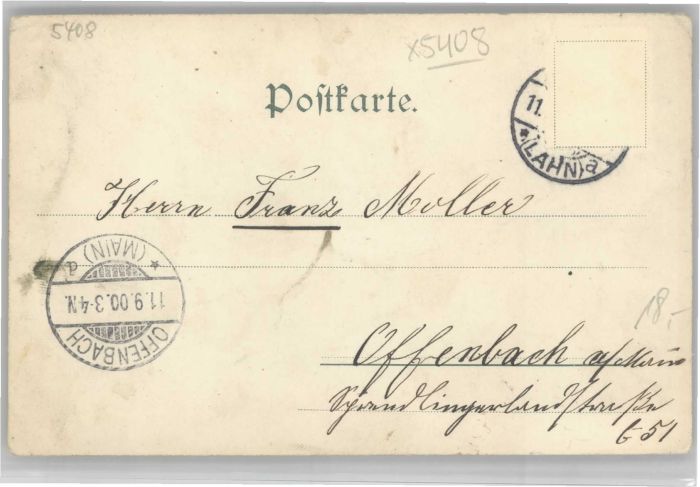 5408
x5408
Postkarte.
11.
*(LAHN)a
Herrn Franz Moller
* (MAIN) a
11.9.00.3-4N.
OFFENBACH
18,-
Offenbach a/Main
Sprendlingerlandstraße
51